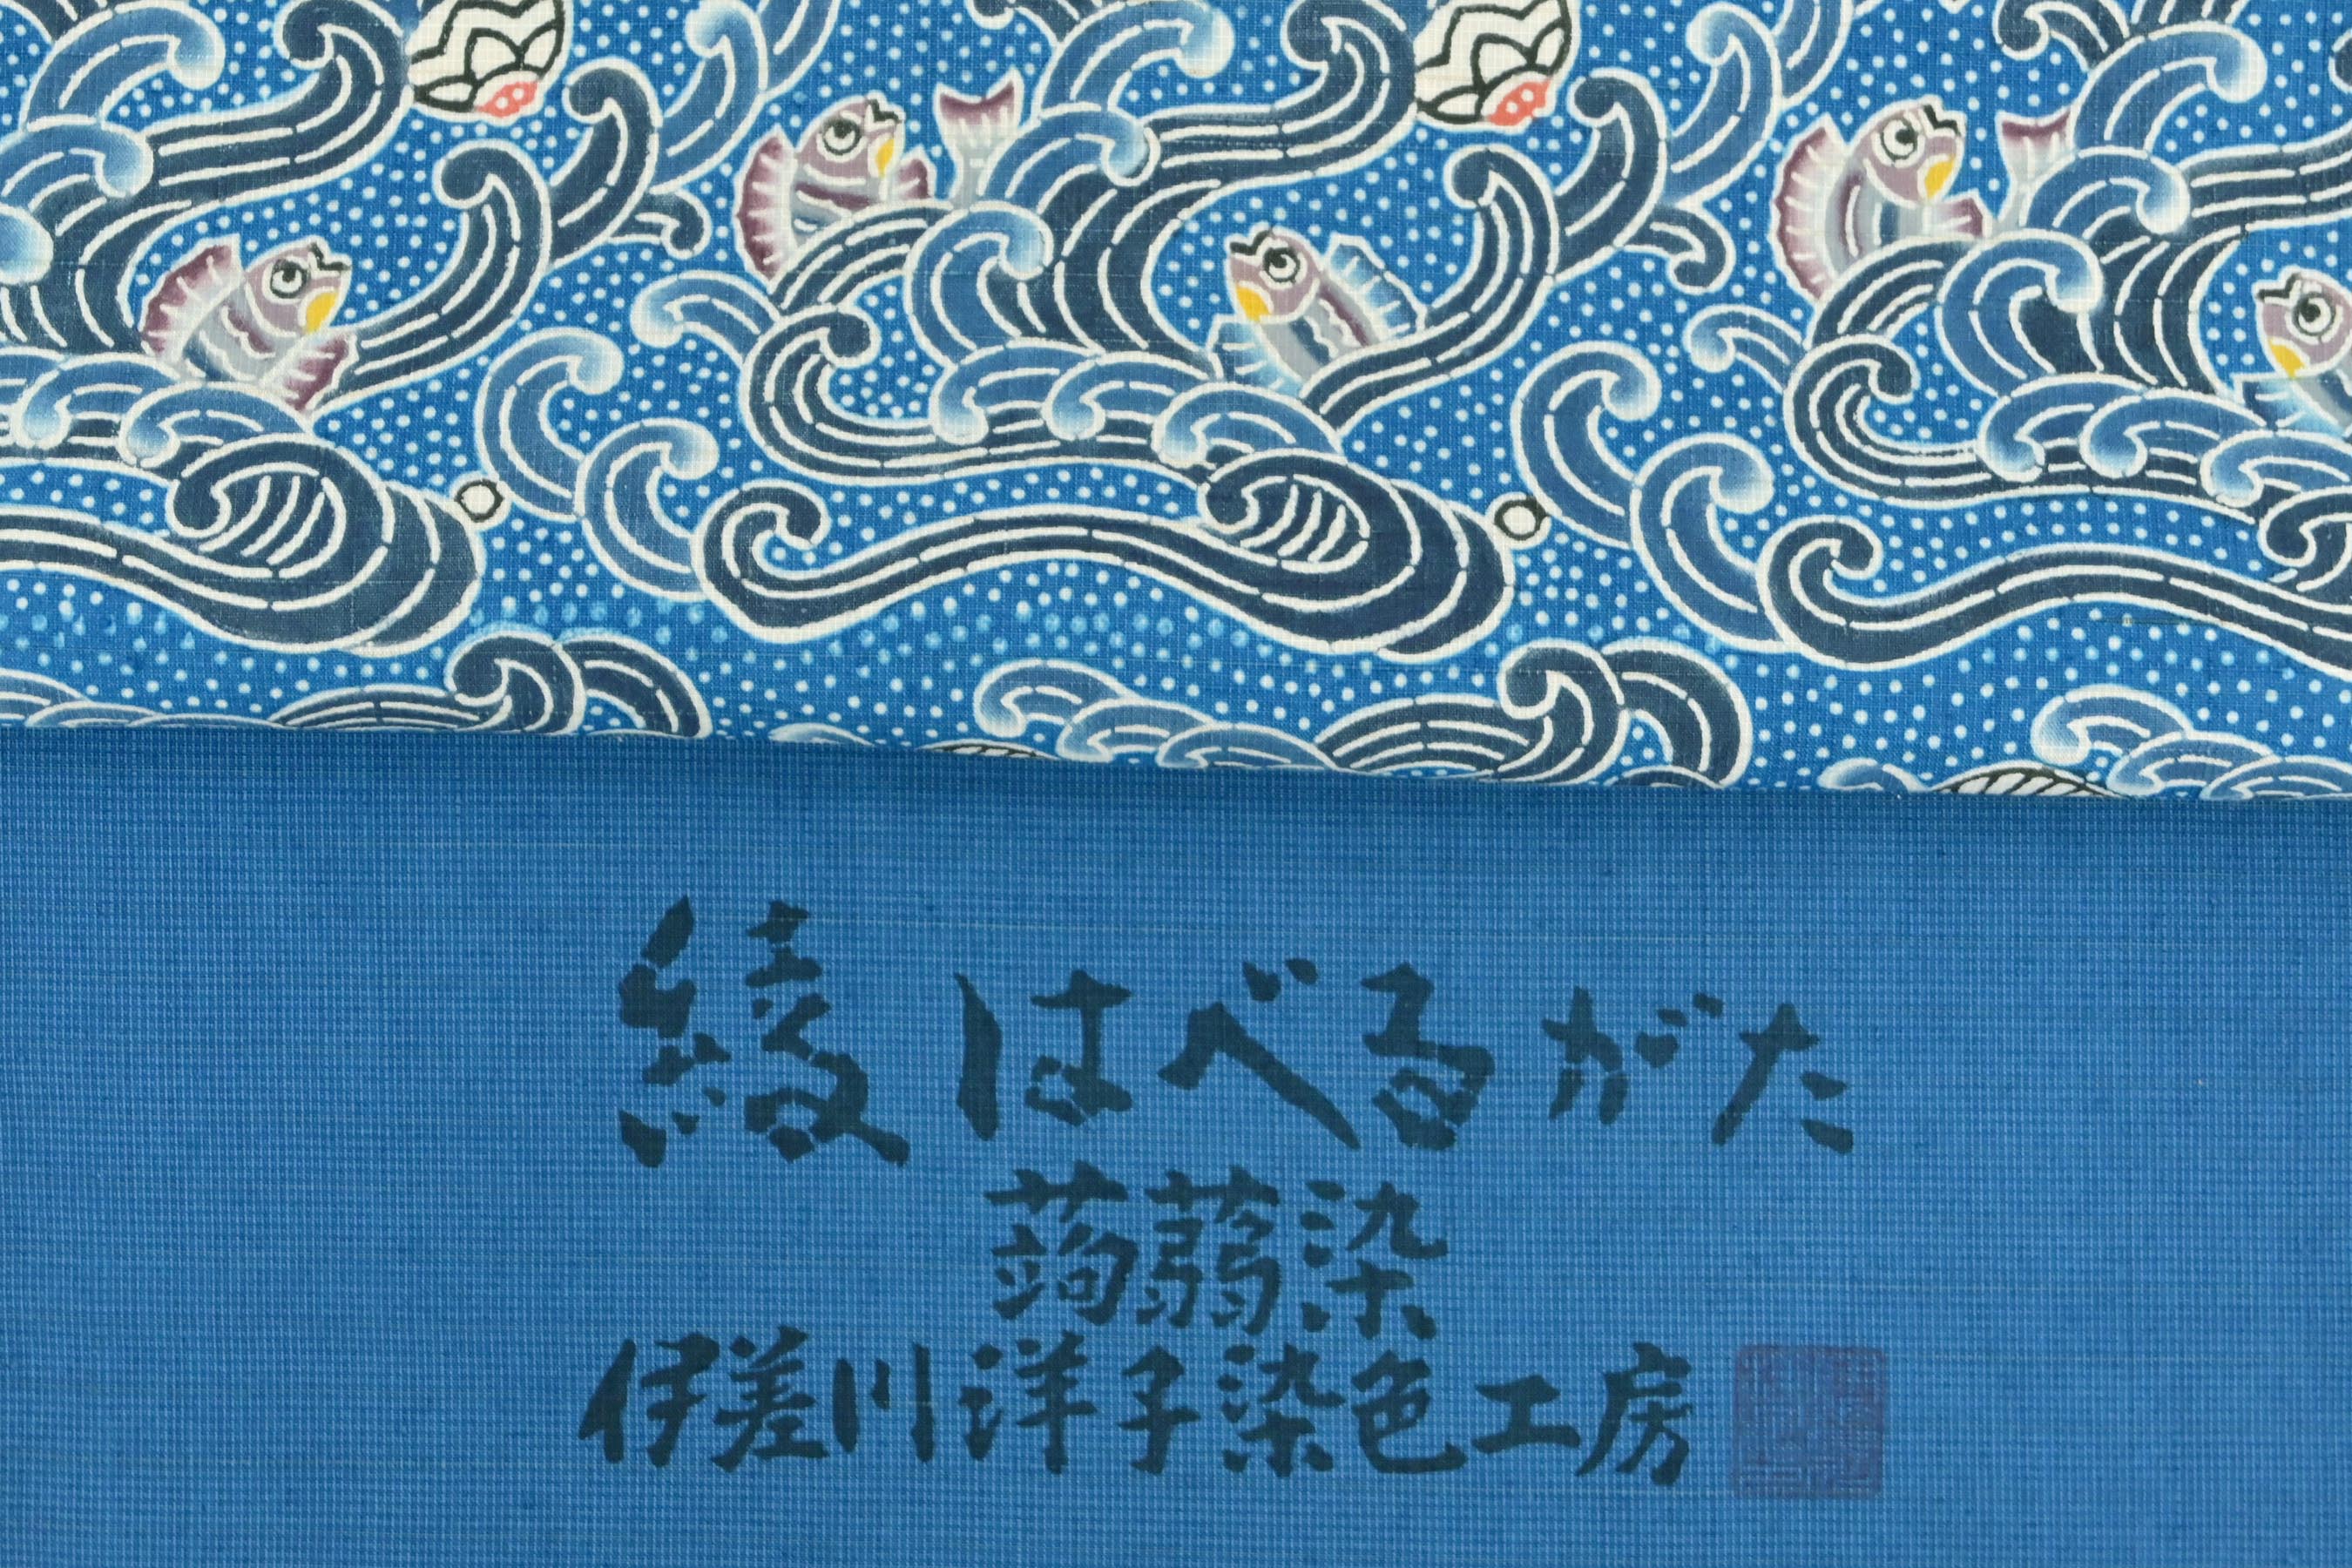 綾はべるがた
蒟蒻染
伊差川洋子染色工房